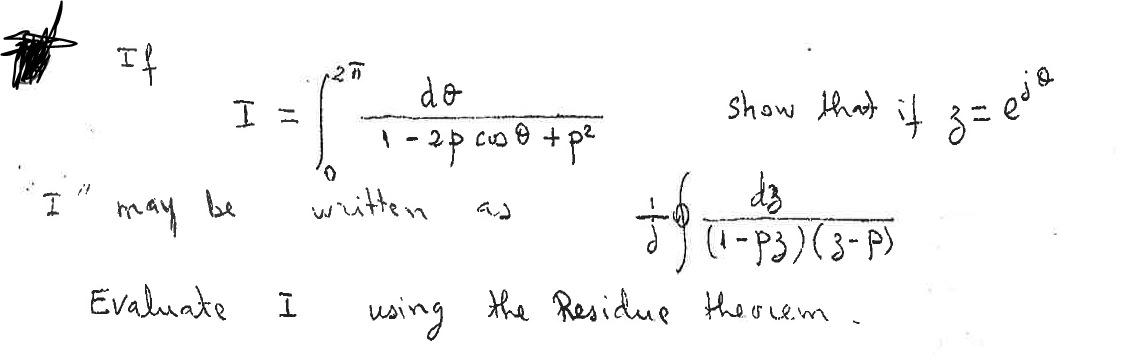 If
I = ∫₀^{2π} dθ / (1 - 2p cos θ + p²) show that if z = e^{jθ}
"I" may be written as 1/j ∮ dz / ((1 - pz)(z - p))
Evaluate I using the Residue theorem.